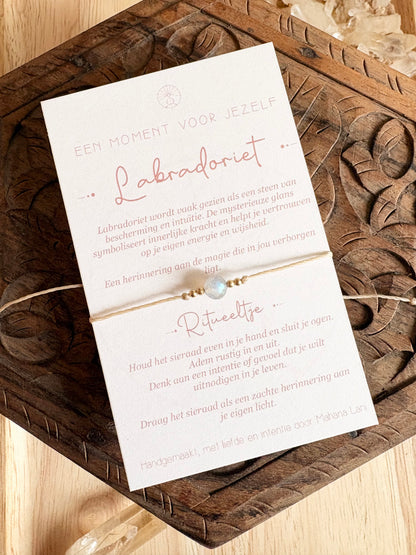 EEN MOMENT VOOR JEZELF
Labradoriet
Labradoriet wordt vaak gezien als een steen van
bescherming en intuïtie. De mysterieuze glans
symboliseert innerlijke kracht en helpt je vertrouwen
op je eigen energie en wijsheid.
Een herinnering aan de magie die in jou verborgen
ligt.
Ritueeltje
Houd het sieraad even in je hand en sluit je ogen.
Adem rustig in en uit.
Denk aan een intentie of gevoel dat je wilt
uitnodigen in je leven.
Draag het sieraad als een zachte herinnering aan
je eigen licht.
Handgemaakt, met liefde en intentie door Mahana Lani